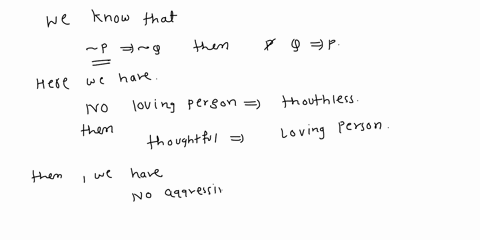 We know that
~P ⇒ ~Q then P Q ⇒ P.
Here we have.
NO loving person ⇒ thouthless.
then
thoughtful ⇒ Loving person.
then, we have
NO aggressin